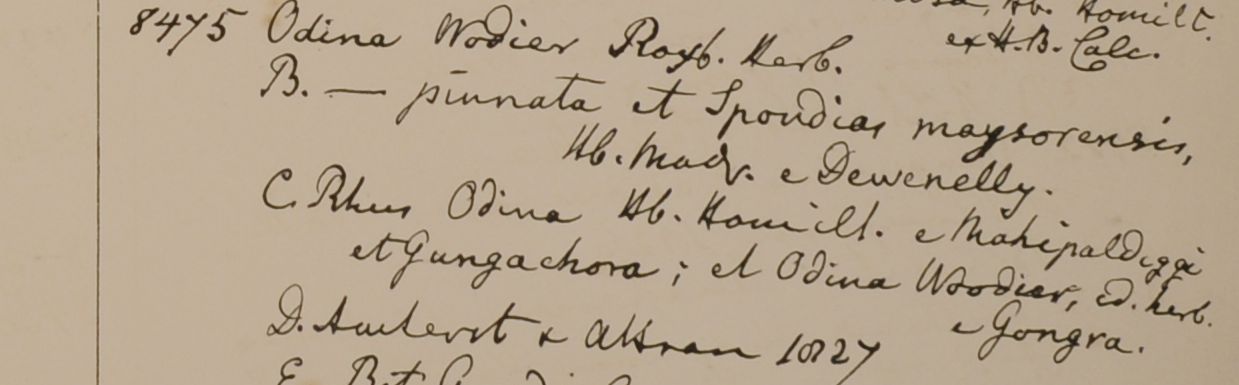 Hb. Hamilt.
8475 Odina Wodier Roxb. Herb. ex H.B. Calc.
B. — pinnata et Spondias maysorensis,
Hb. Madr. e Dewenelly.
C. Rhus Odina Hb. Hamilt. e Mahipaldiggi
et Gungachora; et Odina Woodier, ed. herb.
e Gongra.
D. Amherst & Attran 1827
E.